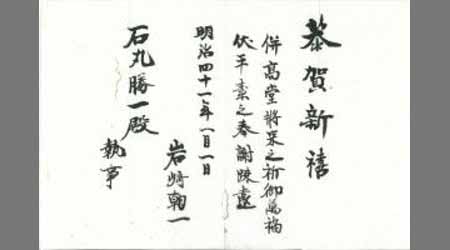 恭賀新禧
併高堂將来之祈御萬福
伏平素之奉謝疎遠
明治四十一年一月一日
岩崎一
石丸勝一殿
執事